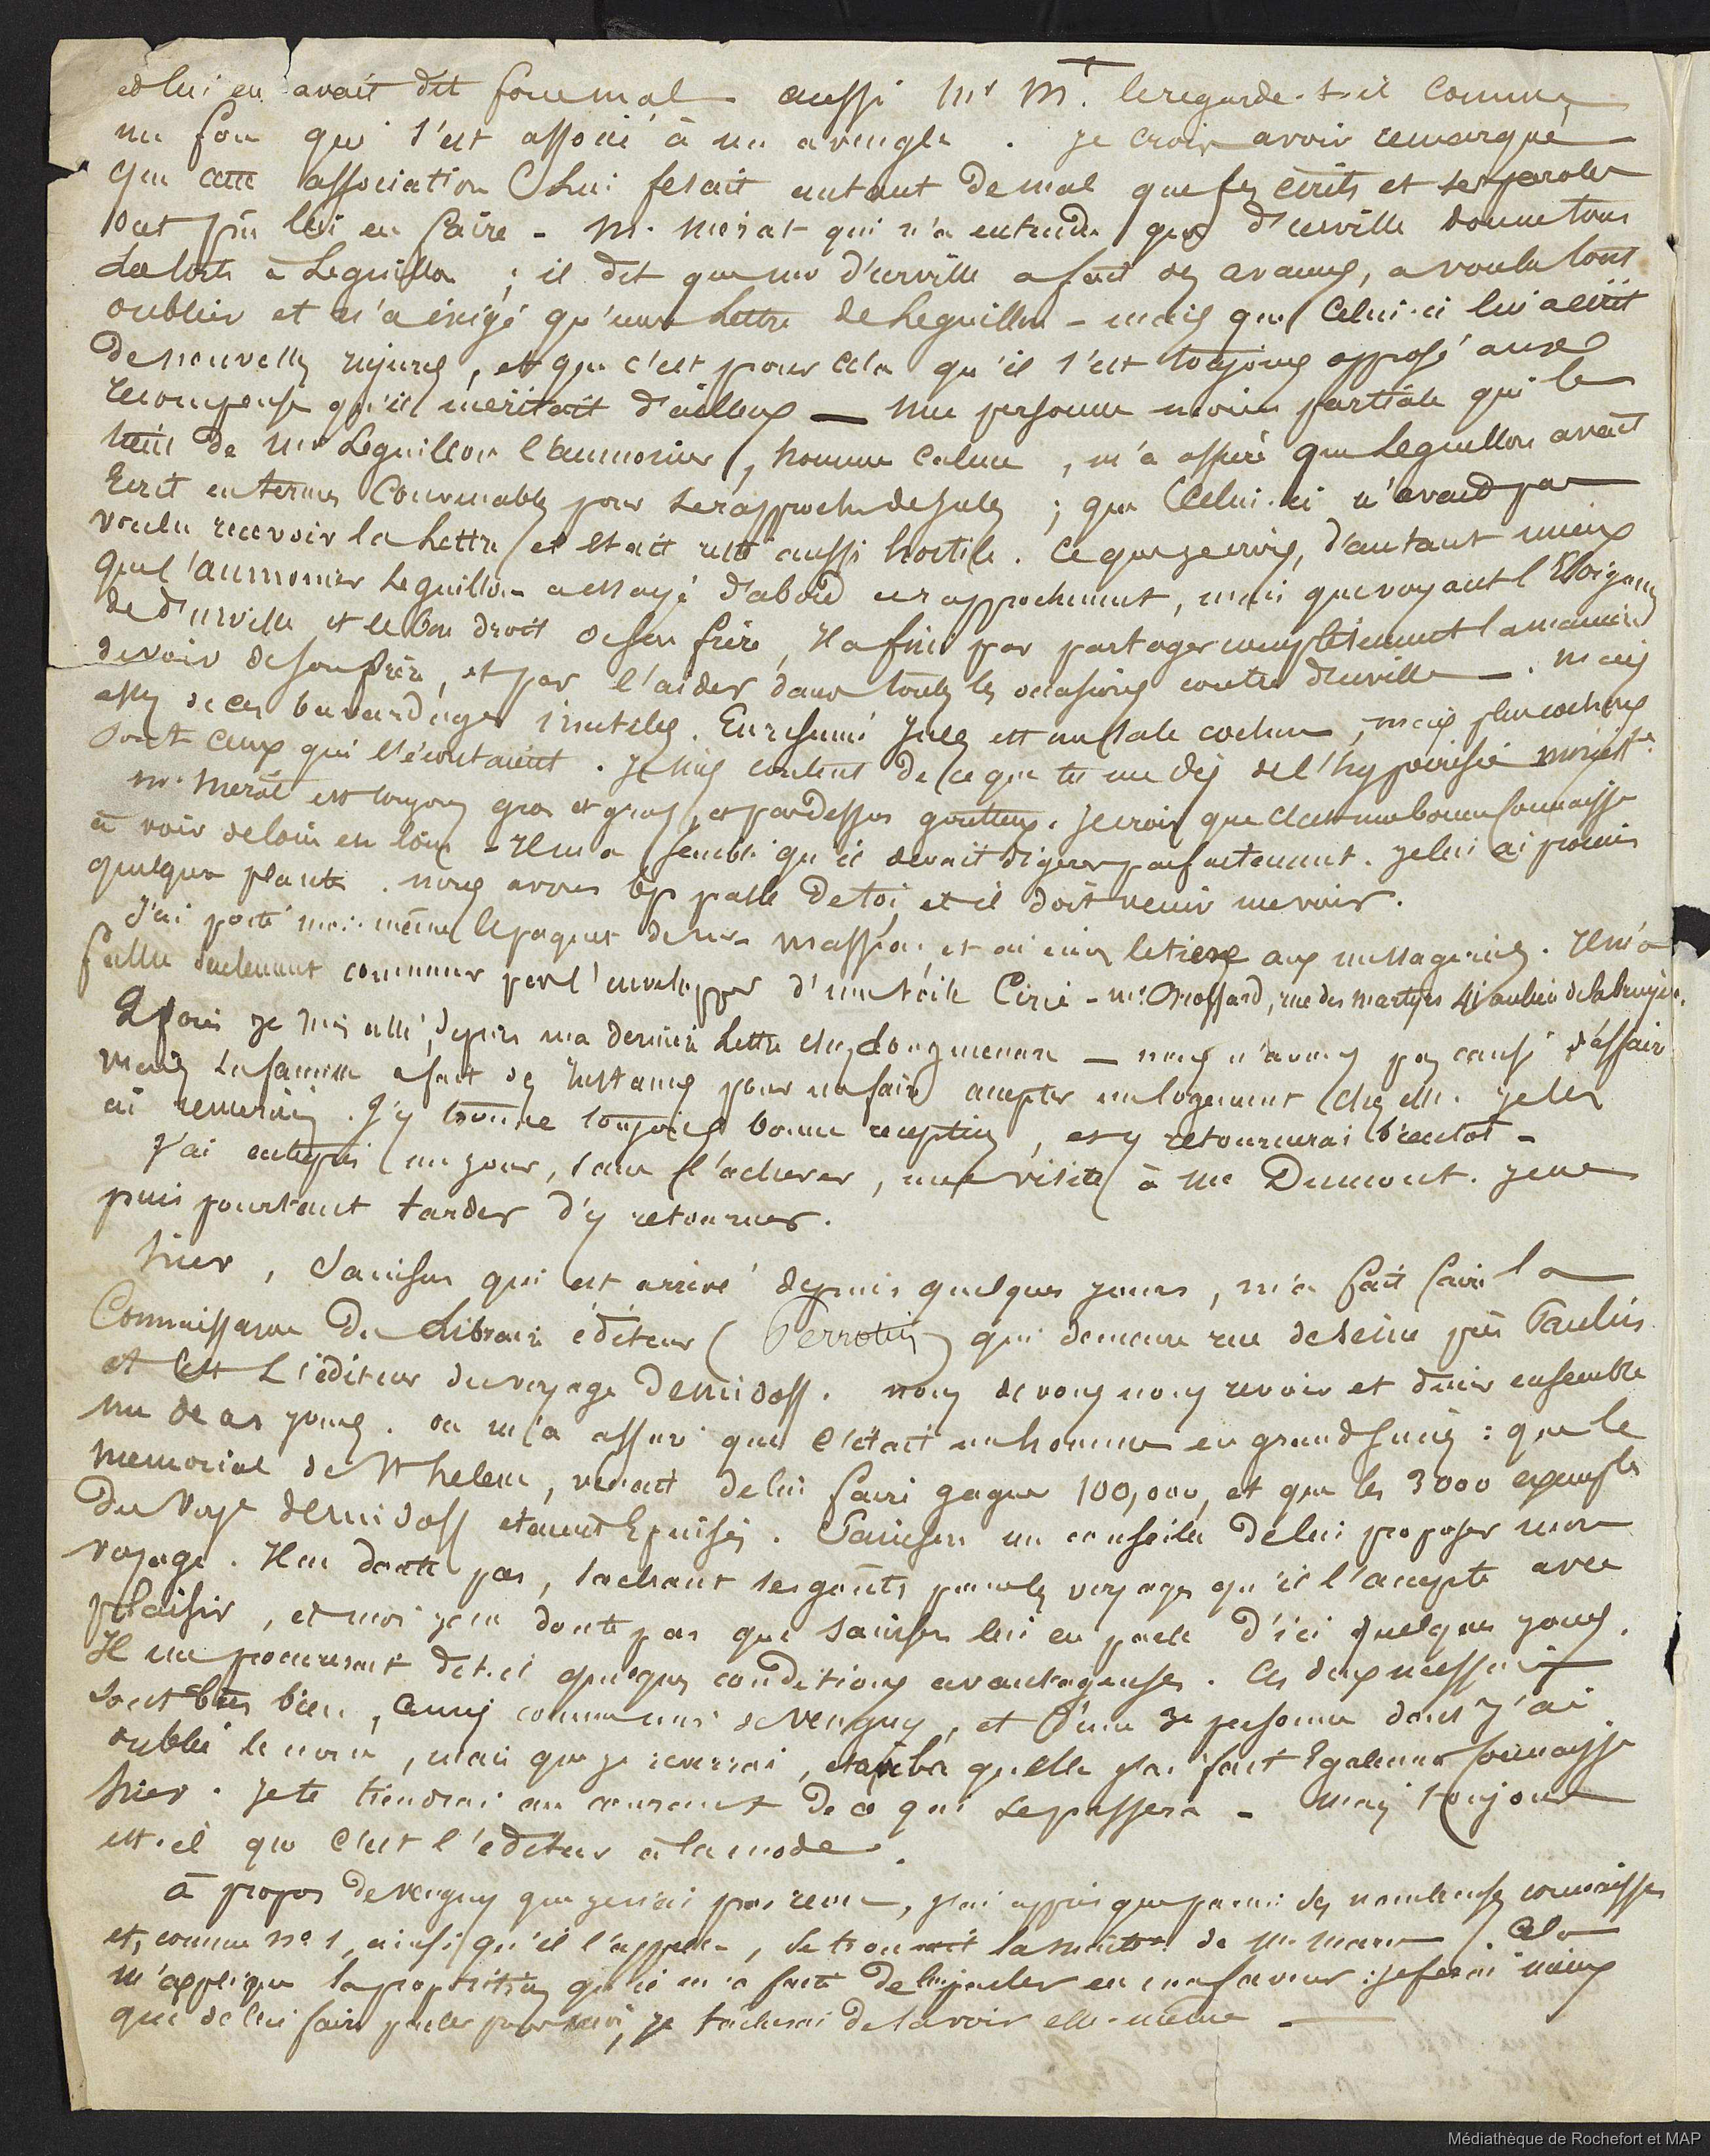 et lui en avait dit fou mal aussi Mr M. le regarde-t-il comme
un fou qui s'est associé à un aveugle. Je crois avoir remarqué
que cette association lui fesait autant de mal que ses écrits et ses paroles
ont pu lui en faire - M. Mérat qui n'a entendu que d'urville donne tous
les torts à Leguillou ; il dit que mr d'urville a fait des avances, a voulu tout
oublier et n'a exigé qu'une lettre de Leguillou - mais que celui-ci lui a écrit
de nouvelles injures, et que c'est pour cela qu'il s'est toujours opposé aux
récompenses qu'il méritait d'ailleurs — une personne moins partiale qui le
tenait de Mr Leguillou l'aumonier, homme calme, m'a assuré que Leguillou avait
Ecrit en termes convenables pour se rapprocher de Jules ; que celui-ci n'avait pas
voulu recevoir la lettre et était resté aussi hostile. Ce que je crois, d'autant mieux
que l'aumonier Leguillou a essayé d'abord ce rapprochement, mais que voyant l'Eloignemt
de d'urville et le bon droit de son frère, Il a fini par partager complètement la manière
de voir de son frère, et par l'aider dans toutes les occasions contre d'urville —. Mais
assez de ces bavardages inutiles. En résumé Jules est un sale cochon, mais plus cochons
sont ceux qui l'écoutaient. Je suis content de ce que tu me dis de l'hypocrisie
Mr. Mérat est toujours gros et gras, et par dessus goutteux. Je crois que c'est une bonne connaisse
à voir de loin en loin - Il m'a semblé qu'il devait digérer parfaitement. Je lui ai promis
quelques plantes. nous avons bp parlé de toi et il doit venir me voir.
J'ai porté moi-même le paquet de mr Masséas, et ai mis le tien aux messageries. Il m'a
fallu seulement comme par l'envelopper d'une toile Cirée - mr Chossard, rue des martyrs 41 au lieu de la bruyère.
2 fois je suis allé, depuis ma dernière lettre chez — nous n'avons pas causé d'affaires
mais sa femme a fait des instances pour me faire accepter un logement chez elle. Je les
ai remerciés. J'y trouve toujours bonne réception, et y retournerai bientôt -
J'ai entrepris un jour, sans l'achever, une visite à Me Dumont. Je ne
puis pourtant tarder d'y retourner.
hier, Sainson qui est arrivé depuis quelques jours, m'a fait faire la
Connaissance du Libraire éditeur (Perrotin) qui demeure rue de seine près Paulin
et est L'éditeur du voyage Demidoff. nous devons nous revoir et diner ensemble
un de ces jours. on m'a assuré que c'était un homme en grand : que le
mémorial de Ste helene, venait de lui faire gagner 100,000, et que les 3000 exempls
du Voyage Demidoff étaient Epuisés. Sainson me conseille de lui proposer mon
voyage. Il ne doute pas, sachant ses goûts pour les voyages qu'il l'accepte avec
plaisir, et moi je ne doute pas que Sainson lui en parle d'ici quelques jours.
Il me procurerait dit-il quelques conditions avantageuses. Ces deux messieurs
sont très bien, amis communs de Venguy, et d'une 3e personne dont j'ai
oublié le nom, mais que je reverrai, et avec laquelle j'ai fait Egalement connaisse
hier. Je te tiendrai au courant de ce qui se passera - mais toujours
est-il que c'est l'éditeur à la mode.
à propos de Venguy que je n'ai pas revu, j'ai appris que parmi ses nombreuses connaisses
et, comme no 1, ainsi qu'il l'appelle, se trouvait la maitresse de Mr . Cela
m'explique la proposition qu'il m'a faite de lui parler en ma faveur : je ferai mieux
que de lui faire parler pour moi, je tacherai de la voir elle-même —
Médiathèque de Rochefort et MAP